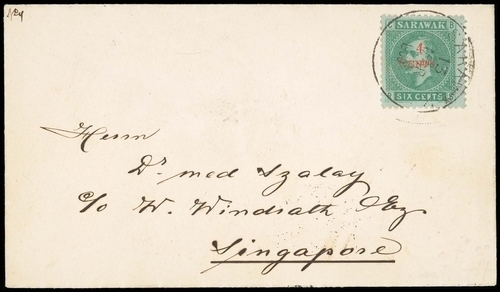 SARAWAK
4
SIX CENTS
Herrn
Dr med Szalay
c/o W. Windrath Esq.
Singapore